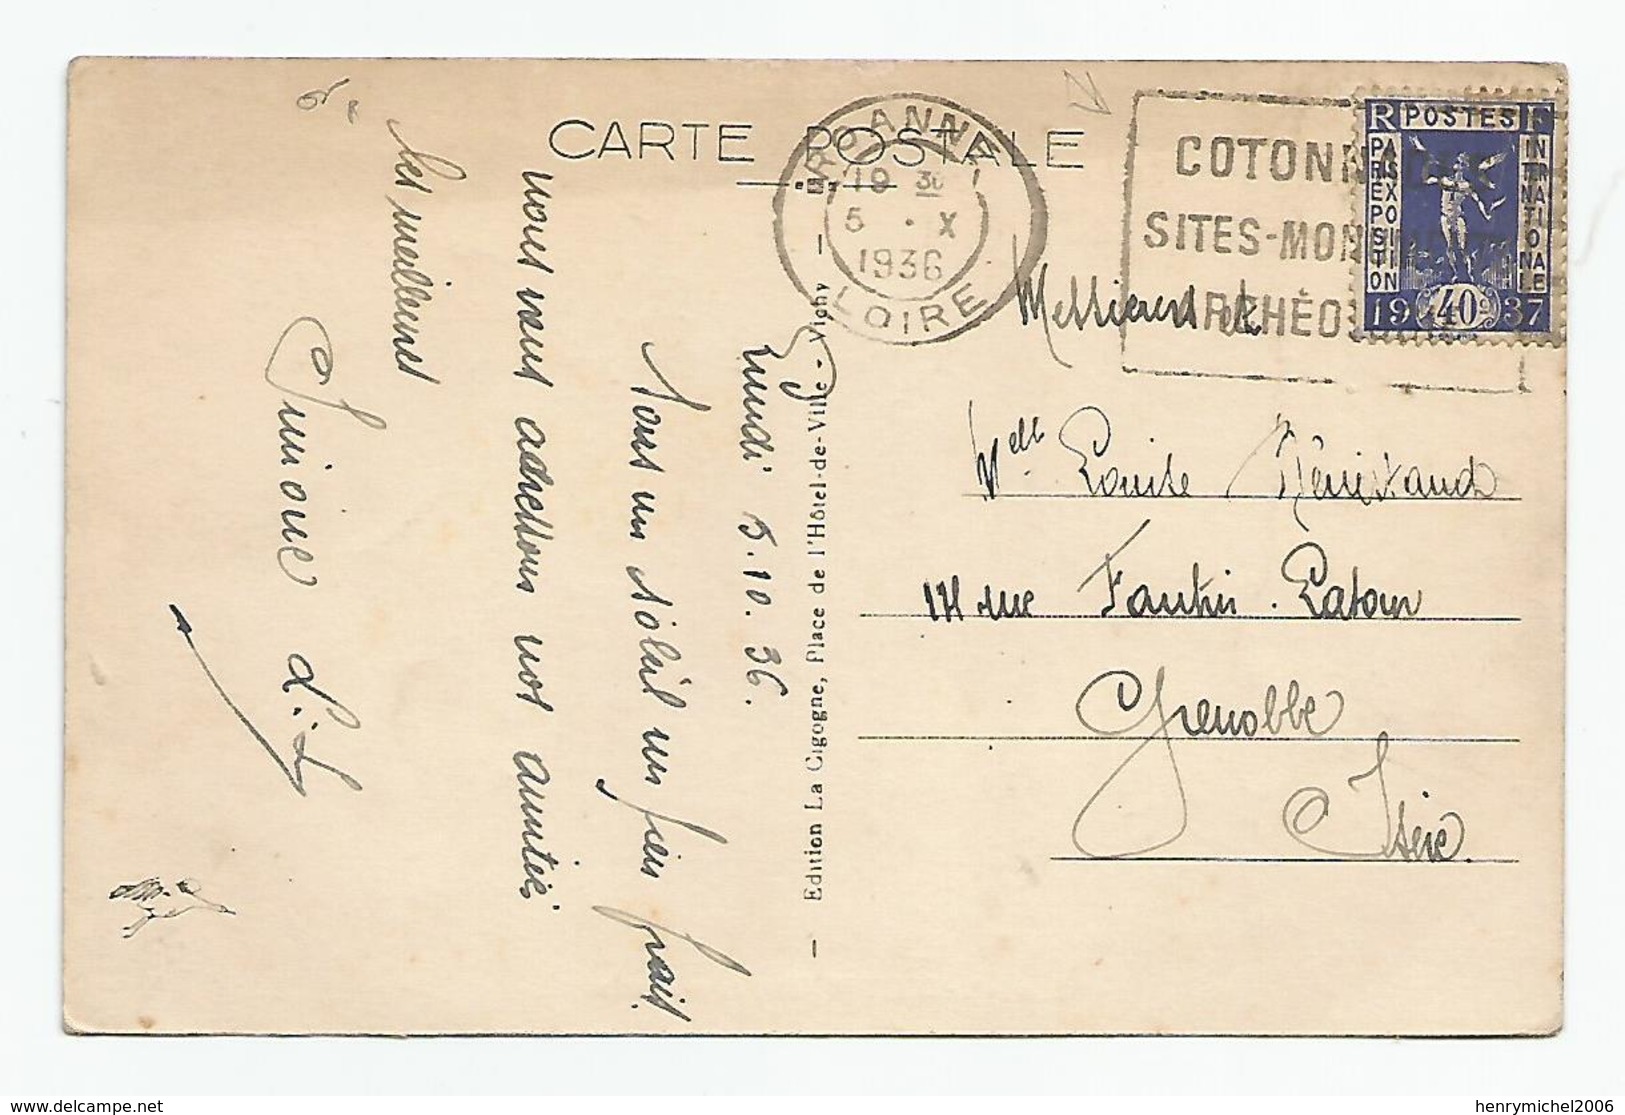 CARTE POSTALE
ROANNE
19 30
5 · X
1936
LOIRE
COTONN
SITES-MON
RCHÉO
R POSTES F
PARIS EXPOSITION
INTERNATIONALE
1937
40
Lundi 5.10.36.
Sous un soleil un peu frais
nous vous adressons nos amitiés
les meilleures
- Edition La Cigogne, Place de l'Hôtel-de-Ville - Vichy -
Messieurs et
Melle Louise
14 rue Fantin-Latour
Grenoble
Isère
delcampe.net
henrymichel2006